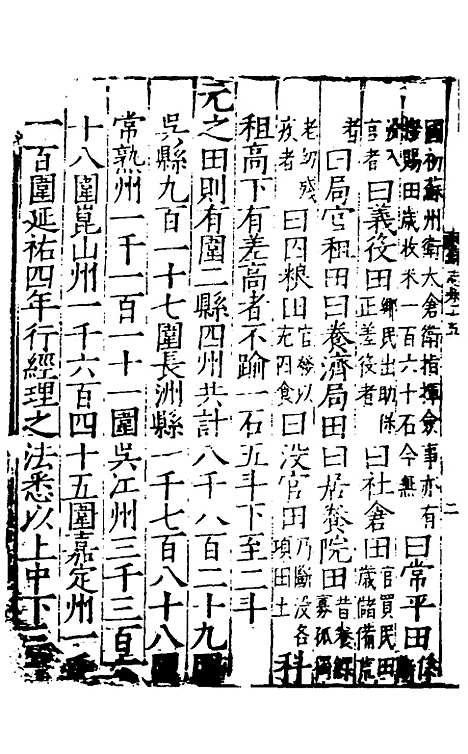 國初蘇州衛太倉衛指揮僉事亦有
賜田歲收米一百六十石今無
曰常平田係
沒入官者
曰義役田鄉民出助保正差役者
曰社倉田官買民田歲儲備荒
者
曰局官租田曰養濟局田曰居養院田昔養鰥寡孤獨
老幼殘疾者
曰囚粮田官撥以充囚食
曰没官田乃斷没各項田土
科
租高下有差高者不踰一石五斗下至二斗
元之田則有圍二縣四州共計八千八百二十九圍
吳縣九百一十七圍長洲縣一千七百八十八圍
常熟州一千一百一十一圍吳江州三千三百
十八圍崑山州一千六百四十五圍嘉定州一千
一百圍延祐四年行經理之法悉以上中下三